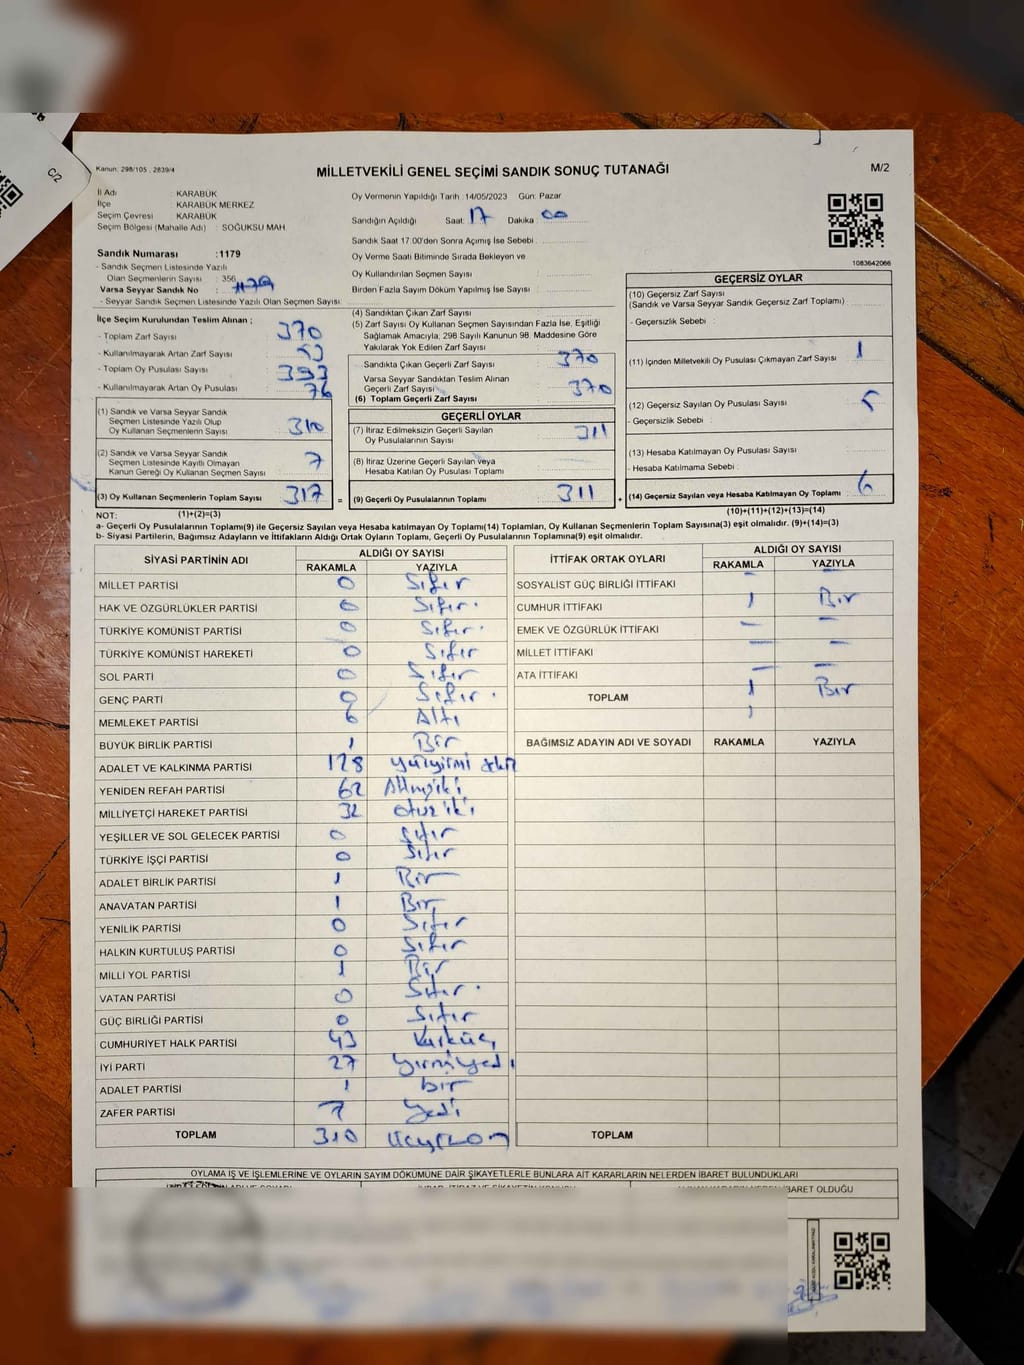 C/2
Kanun: 298/105 , 2839/4
MİLLETVEKİLİ GENEL SEÇİMİ SANDIK SONUÇ TUTANAĞI
M/2
İl Adı : KARABÜK
İlçe : KARABÜK MERKEZ
Seçim Çevresi : KARABÜK
Seçim Bölgesi (Mahalle Adı) : SOĞUKSU MAH
Oy Vermenin Yapıldığı Tarih :14/05/2023 Gün: Pazar
Sandığın Açıldığı Saat: 17 Dakika 00
Sandık Saat 17.00'den Sonra Açımış İse Sebebi :
Oy Verme Saati Bitiminde Sırada Bekleyen ve
Oy Kullandırılan Seçmen Sayısı :
Birden Fazla Sayım Döküm Yapılmış İse Sayısı :
1083642066
Sandık Numarası :1179
- Sandık Seçmen Listesinde Yazılı
Olan Seçmenlerin Sayısı : 356
Varsa Seyyar Sandık No :
- Seyyar Sandık Seçmen Listesinde Yazılı Olan Seçmen Sayısı :
İlçe Seçim Kurulundan Teslim Alınan ;
- Toplam Zarf Sayısı : 370
- Kullanılmayarak Artan Zarf Sayısı : 53
- Toplam Oy Pusulası Sayısı : 393
- Kullanılmayarak Artan Oy Pusulası : 76
(1) Sandık ve Varsa Seyyar Sandık
Seçmen Listesinde Yazılı Olup
Oy Kullanan Seçmenlerin Sayısı : 310
(2) Sandık ve Varsa Seyyar Sandık
Seçmen Listesinde Kayıtlı Olmayan
Kanun Gereği Oy Kullanan Seçmen Sayısı : 7
(3) Oy Kullanan Seçmenlerin Toplam Sayısı : 317
(4) Sandıktan Çıkan Zarf Sayısı :
(5) Zarf Sayısı Oy Kullanan Seçmen Sayısından Fazla İse, Eşitliği
Sağlamak Amacıyla, 298 Sayılı Kanunun 98. Maddesine Göre
Yakılarak Yok Edilen Zarf Sayısı :
Sandıkta Çıkan Geçerli Zarf Sayısı : 370
Varsa Seyyar Sandıktan Teslim Alınan
Geçerli Zarf Sayısı :
(6) Toplam Geçerli Zarf Sayısı : 370
GEÇERLİ OYLAR
(7) İtiraz Edilmeksizin Geçerli Sayılan
Oy Pusulalarının Sayısı : 311
(8) İtiraz Üzerine Geçerli Sayılan veya
Hesaba Katılan Oy Pusulası Toplamı :
= (9) Geçerli Oy Pusulalarının Toplamı : 311
GEÇERSİZ OYLAR
(10) Geçersiz Zarf Sayısı
(Sandık ve Varsa Seyyar Sandık Geçersiz Zarf Toplamı) :
- Geçersizlik Sebebi :
(11) İçinden Milletvekili Oy Pusulası Çıkmayan Zarf Sayısı : 1
(12) Geçersiz Sayılan Oy Pusulası Sayısı : 5
- Geçersizlik Sebebi :
(13) Hesaba Katılmayan Oy Pusulası Sayısı :
- Hesaba Katılmama Sebebi :
+ (14) Geçersiz Sayılan veya Hesaba Katılmayan Oy Toplamı : 6
NOT: (1)+(2)=(3)
(10)+(11)+(12)+(13)=(14)
a- Geçerli Oy Pusulalarının Toplamı(9) ile Geçersiz Sayılan veya Hesaba katılmayan Oy Toplamı(14) Toplamları, Oy Kullanan Seçmenlerin Toplam Sayısına(3) eşit olmalıdır. (9)+(14)=(3)
b- Siyasi Partilerin, Bağımsız Adayların ve İttifakların Aldığı Ortak Oyların Toplamı, Geçerli Oy Pusulalarının Toplamına(9) eşit olmalıdır.
SİYASİ PARTİNİN ADI
ALDIĞI OY SAYISI
RAKAMLA YAZIYLA
MİLLET PARTİSİ 0 Sıfır
HAK VE ÖZGÜRLÜKLER PARTİSİ 0 Sıfır.
TÜRKİYE KOMÜNİST PARTİSİ 0 Sıfır.
TÜRKİYE KOMÜNİST HAREKETİ 0 Sıfır
SOL PARTİ 0 Sıfır
GENÇ PARTİ 0 Sıfır.
MEMLEKET PARTİSİ 6 Altı
BÜYÜK BİRLİK PARTİSİ 1 Bir
ADALET VE KALKINMA PARTİSİ 128
YENİDEN REFAH PARTİSİ 62
MİLLİYETÇİ HAREKET PARTİSİ 32 otuziki
YEŞİLLER VE SOL GELECEK PARTİSİ 0 Sıfır
TÜRKİYE İŞÇİ PARTİSİ 0 Sıfır
ADALET BİRLİK PARTİSİ 1 Bir
ANAVATAN PARTİSİ 1 Bir
YENİLİK PARTİSİ 0 Sıfır
HALKIN KURTULUŞ PARTİSİ 0 Sıfır
MİLLİ YOL PARTİSİ 1 Bir
VATAN PARTİSİ 0 Sıfır.
GÜÇ BİRLİĞİ PARTİSİ 0 Sıfır
CUMHURİYET HALK PARTİSİ 43 Kırküç
İYİ PARTİ 27 yirmiyedi
ADALET PARTİSİ 1 bir
ZAFER PARTİSİ 7 Yedi
TOPLAM 310 Üçyüzon
İTTİFAK ORTAK OYLARI
ALDIĞI OY SAYISI
RAKAMLA YAZIYLA
SOSYALİST GÜÇ BİRLİĞİ İTTİFAKI — —
CUMHUR İTTİFAKI 1 Bir
EMEK VE ÖZGÜRLÜK İTTİFAKI — —
MİLLET İTTİFAKI — —
ATA İTTİFAKI — —
TOPLAM 1 Bir
BAĞIMSIZ ADAYIN ADI VE SOYADI RAKAMLA YAZIYLA
TOPLAM
OYLAMA İŞ VE İŞLEMLERİNE VE OYLARIN SAYIM DÖKÜMÜNE DAİR ŞİKAYETLERLE BUNLARA AİT KARARLARIN NELERDEN İBARET BULUNDUKLARI
İBARET OLDUĞU